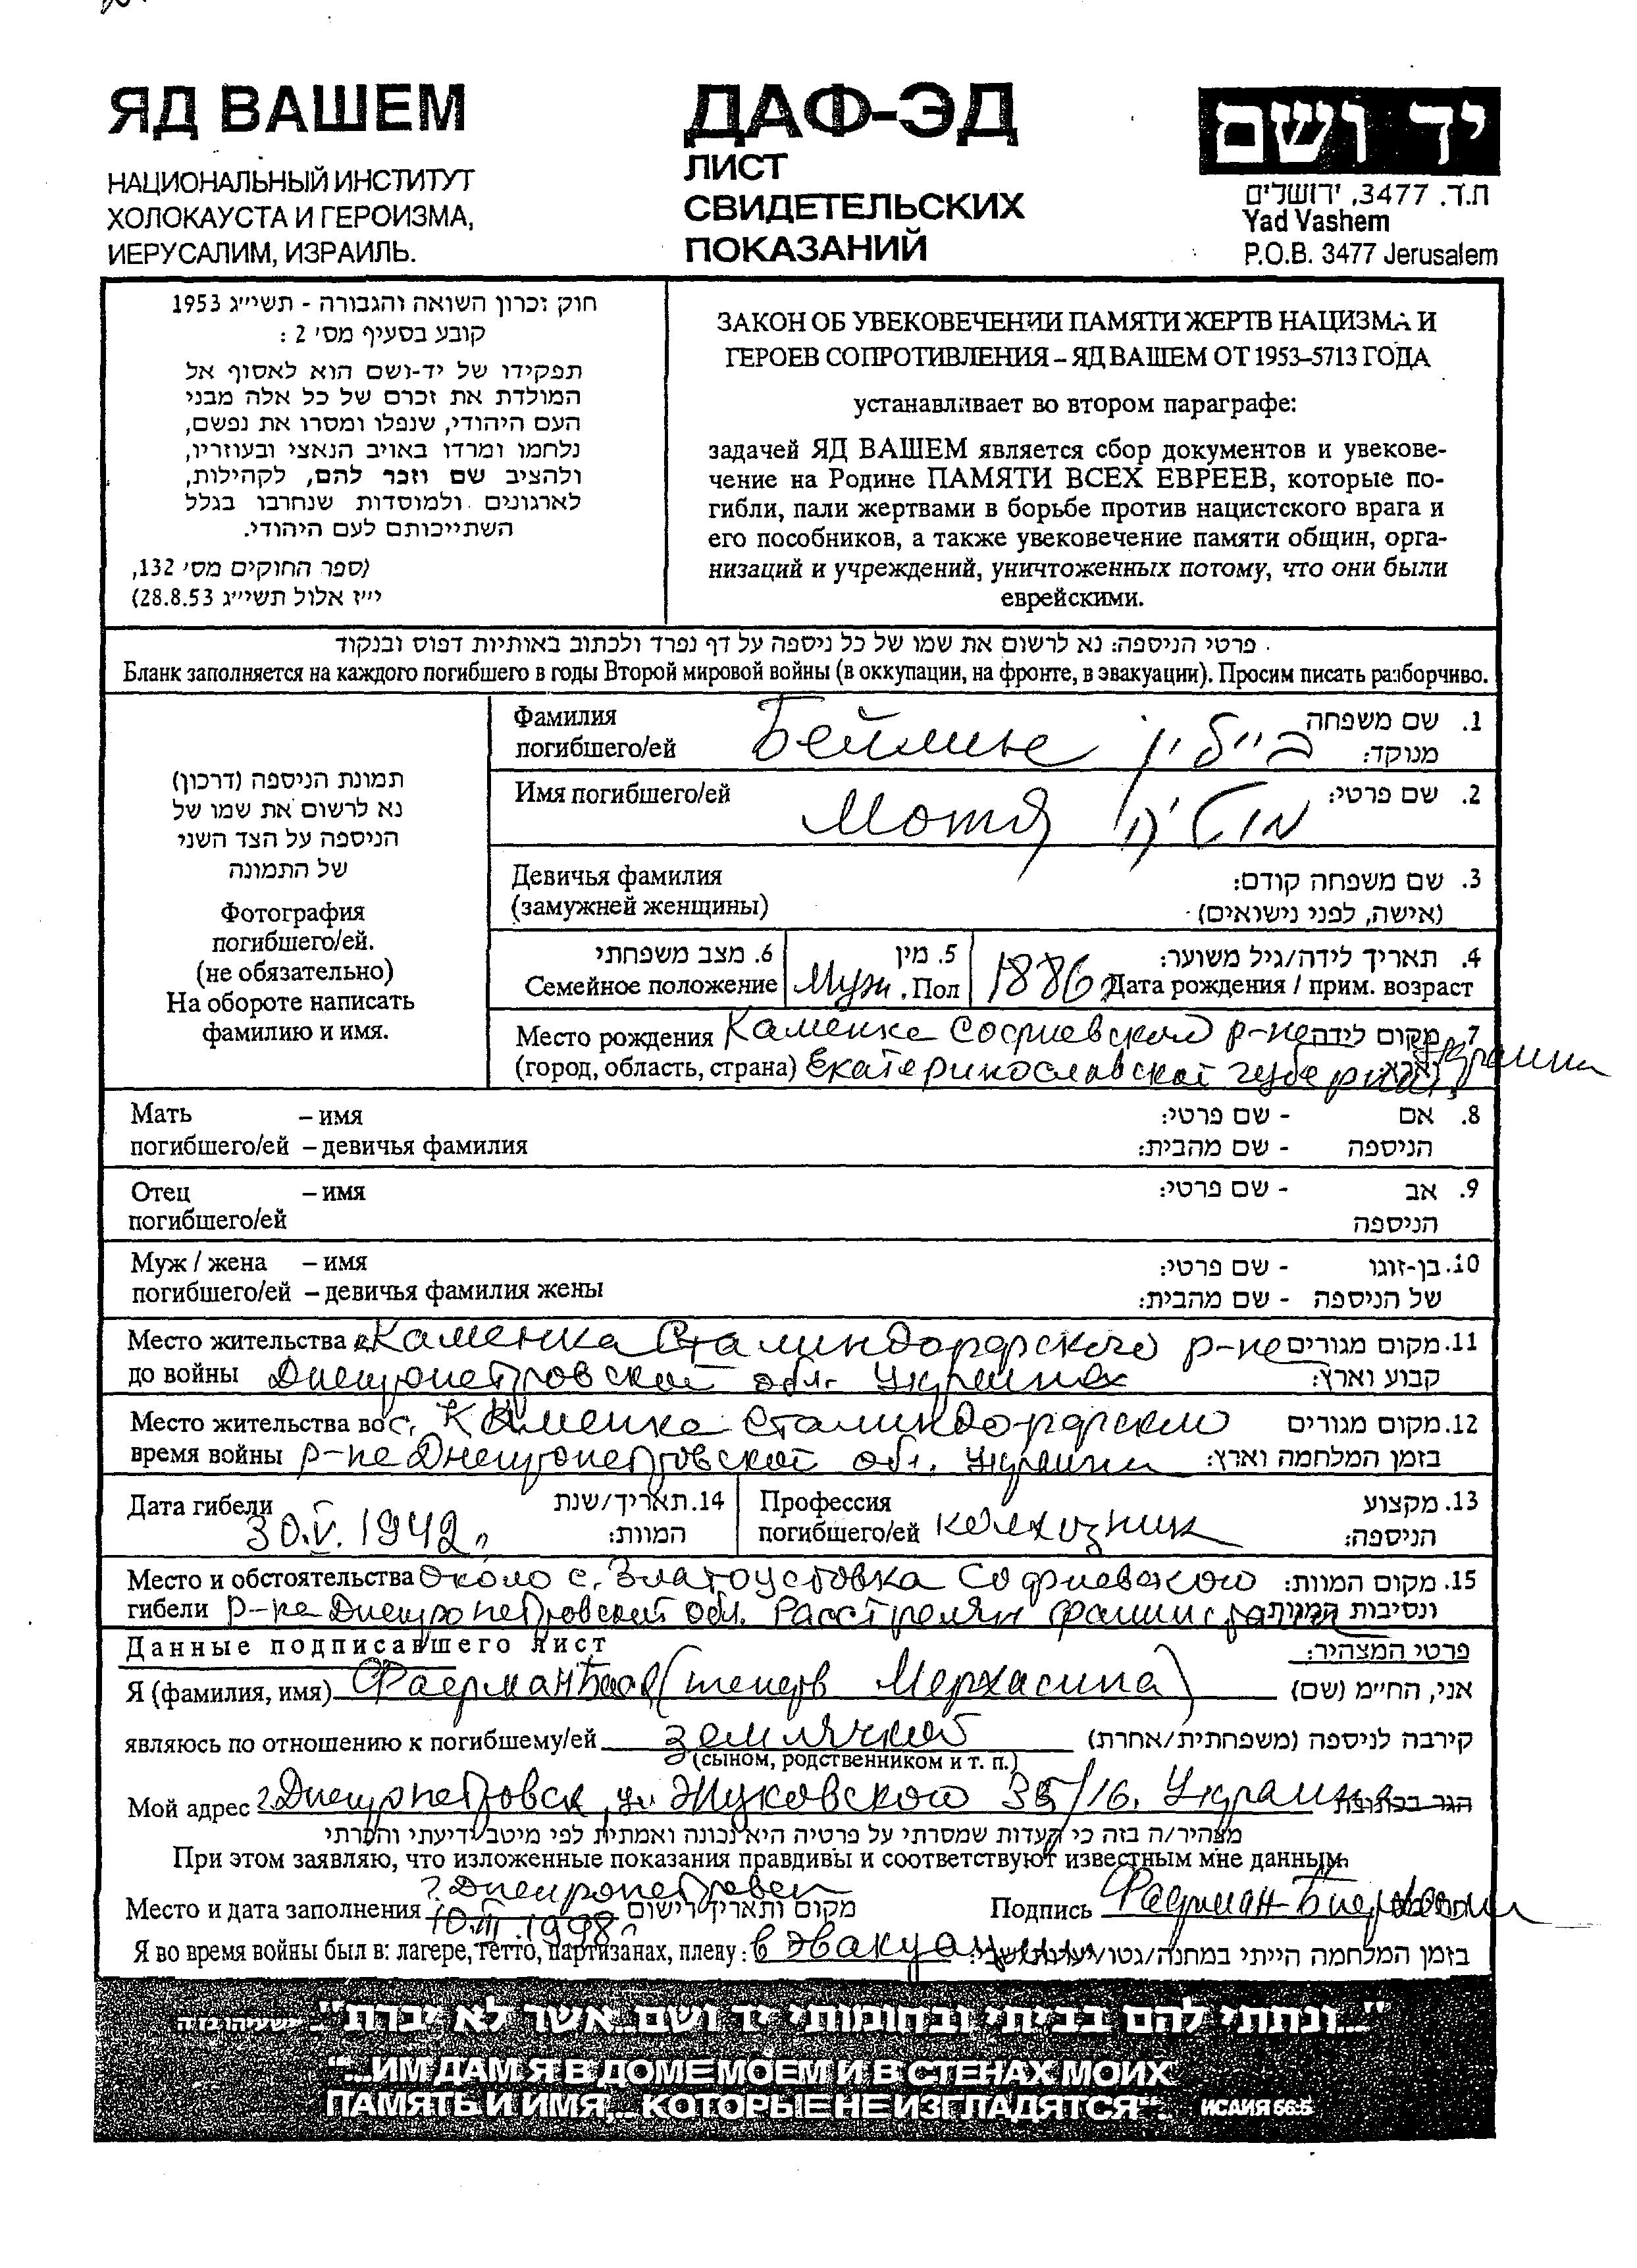 ЯД ВАШЕМ
НАЦИОНАЛЬНЫЙ ИНСТИТУТ
ХОЛОКАУСТА И ГЕРОИЗМА,
ИЕРУСАЛИМ, ИЗРАИЛЬ.
ДАФ-ЭД
ЛИСТ
СВИДЕТЕЛЬСКИХ
ПОКАЗАНИЙ
יד ושם
ת.ד. 3477, ירושלים
Yad Vashem
P.O.B. 3477 Jerusalem
חוק זכרון השואה והגבורה - תשי״ג 1953
קובע בסעיף מס׳ 2 :
תפקידו של יד-ושם הוא לאסוף אל
המולדת את זכרם של כל אלה מבני
העם היהודי, שנפלו ומסרו את נפשם,
נלחמו ומרדו באויב הנאצי ובעוזריו,
ולהציב שם וזכר להם, לקהילות,
לארגונים ולמוסדות שנחרבו בגלל
השתייכותם לעם היהודי.
(ספר החוקים מס׳ 132,
י״ז אלול תשי״ג 28.8.53)
ЗАКОН ОБ УВЕКОВЕЧЕНИИ ПАМЯТИ ЖЕРТВ НАЦИЗМА И
ГЕРОЕВ СОПРОТИВЛЕНИЯ – ЯД ВАШЕМ ОТ 1953–5713 ГОДА
устанавливает во втором параграфе:
задачей ЯД ВАШЕМ является сбор документов и увекове-
чение на Родине ПАМЯТИ ВСЕХ ЕВРЕЕВ, которые по-
гибли, пали жертвами в борьбе против нацистского врага и
его пособников, а также увековечение памяти общин, орга-
низаций и учреждений, уничтоженных потому, что они были
еврейскими.
פרטי הניספה: נא לרשום את שמו של כל ניספה על דף נפרד ולכתוב באותיות דפוס ובנקוד
Бланк заполняется на каждого погибшего в годы Второй мировой войны (в оккупации, на фронте, в эвакуации). Просим писать разборчиво.
תמונת הניספה (דרכון)
נא לרשום את שמו של
הניספה על הצד השני
של התמונה
Фотография
погибшего/ей.
(не обязательно)
На обороте написать
фамилию и имя.
Фамилия Бейлин ביילין 1. שם משפחה
погибшего/ей מנוקד:
Имя погибшего/ей Мотя 2. שם פרטי:
Девичья фамилия 3. שם משפחה קודם:
(замужней женщины) (אישה, לפני נישואים)
6. מצב משפחתי 5. מין 4. תאריך לידה/גיל משוער:
Семейное положение Муж. Пол 1886 Дата рождения / прим. возраст
Место рождения Каменка Софиевского р-на 7. מקום לידה
(город, область, страна) Екатеринославской губернии, Украина
Мать – имя 8. אם - שם פרטי:
погибшего/ей – девичья фамилия הניספה - שם מהבית:
Отец – имя 9. אב - שם פרטי:
погибшего/ей הניספה
Муж / жена – имя 10. בן-זוגו - שם פרטי:
погибшего/ей – девичья фамилия жены של הניספה - שם מהבית:
Место жительства Каменка Сталиндорфского р-на 11. מקום מגורים
до войны Днепропетровской обл. Украина קבוע וארץ:
Место жительства во с. Каменка Сталиндорфского 12. מקום מגורים
время войны р-на Днепропетровской обл. Украина בזמן המלחמה וארץ:
Дата гибели 14. תאריך/שנת Профессия 13. מקצוע
30.V.1942г המוות: погибшего/ей колхозник הניספה:
Место и обстоятельства Около с. Златоустовка Софиевского 15. מקום המוות:
гибели р-на Днепропетровской обл. Расстрелян фашистами ונסיבות המוות
Данные подписавшего лист פרטי המצהיר:
Я (фамилия, имя) Фаерман (теперь Мерхасина) אני, הח״מ (שם)
являюсь по отношению к погибшему/ей землячкой קירבה לניספה (משפחתית/אחרת)
(сыном, родственником и т. п.)
Мой адрес г.Днепропетровск, ул Жуковского 35/16. Украина הגר בכתובת
מצהיר/ה בזה כי העדות שמסרתי על פרטיה היא נכונה ואמתית לפי מיטב ידיעתי והכרתי
При этом заявляю, что изложенные показания правдивы и соответствуют известным мне данным.
г. Днепропетровск
Место и дата заполнения 10.III.1998г מקום ותאריך רישום Подпись Фаерман-
Я во время войны был в: лагере, гетто, партизанах, плену: в эвакуации בזמן המלחמה הייתי במחנה/גטו/
"...ונתתי להם בביתי ובחומותי יד ושם...אשר לא יכרת". ישעיהו נו ה
"...ИМ ДАМ Я В ДОМЕ МОЕМ И В СТЕНАХ МОИХ
ПАМЯТЬ И ИМЯ,...КОТОРЫЕ НЕ ИЗГЛАДЯТСЯ". ИСАИЯ 56:5